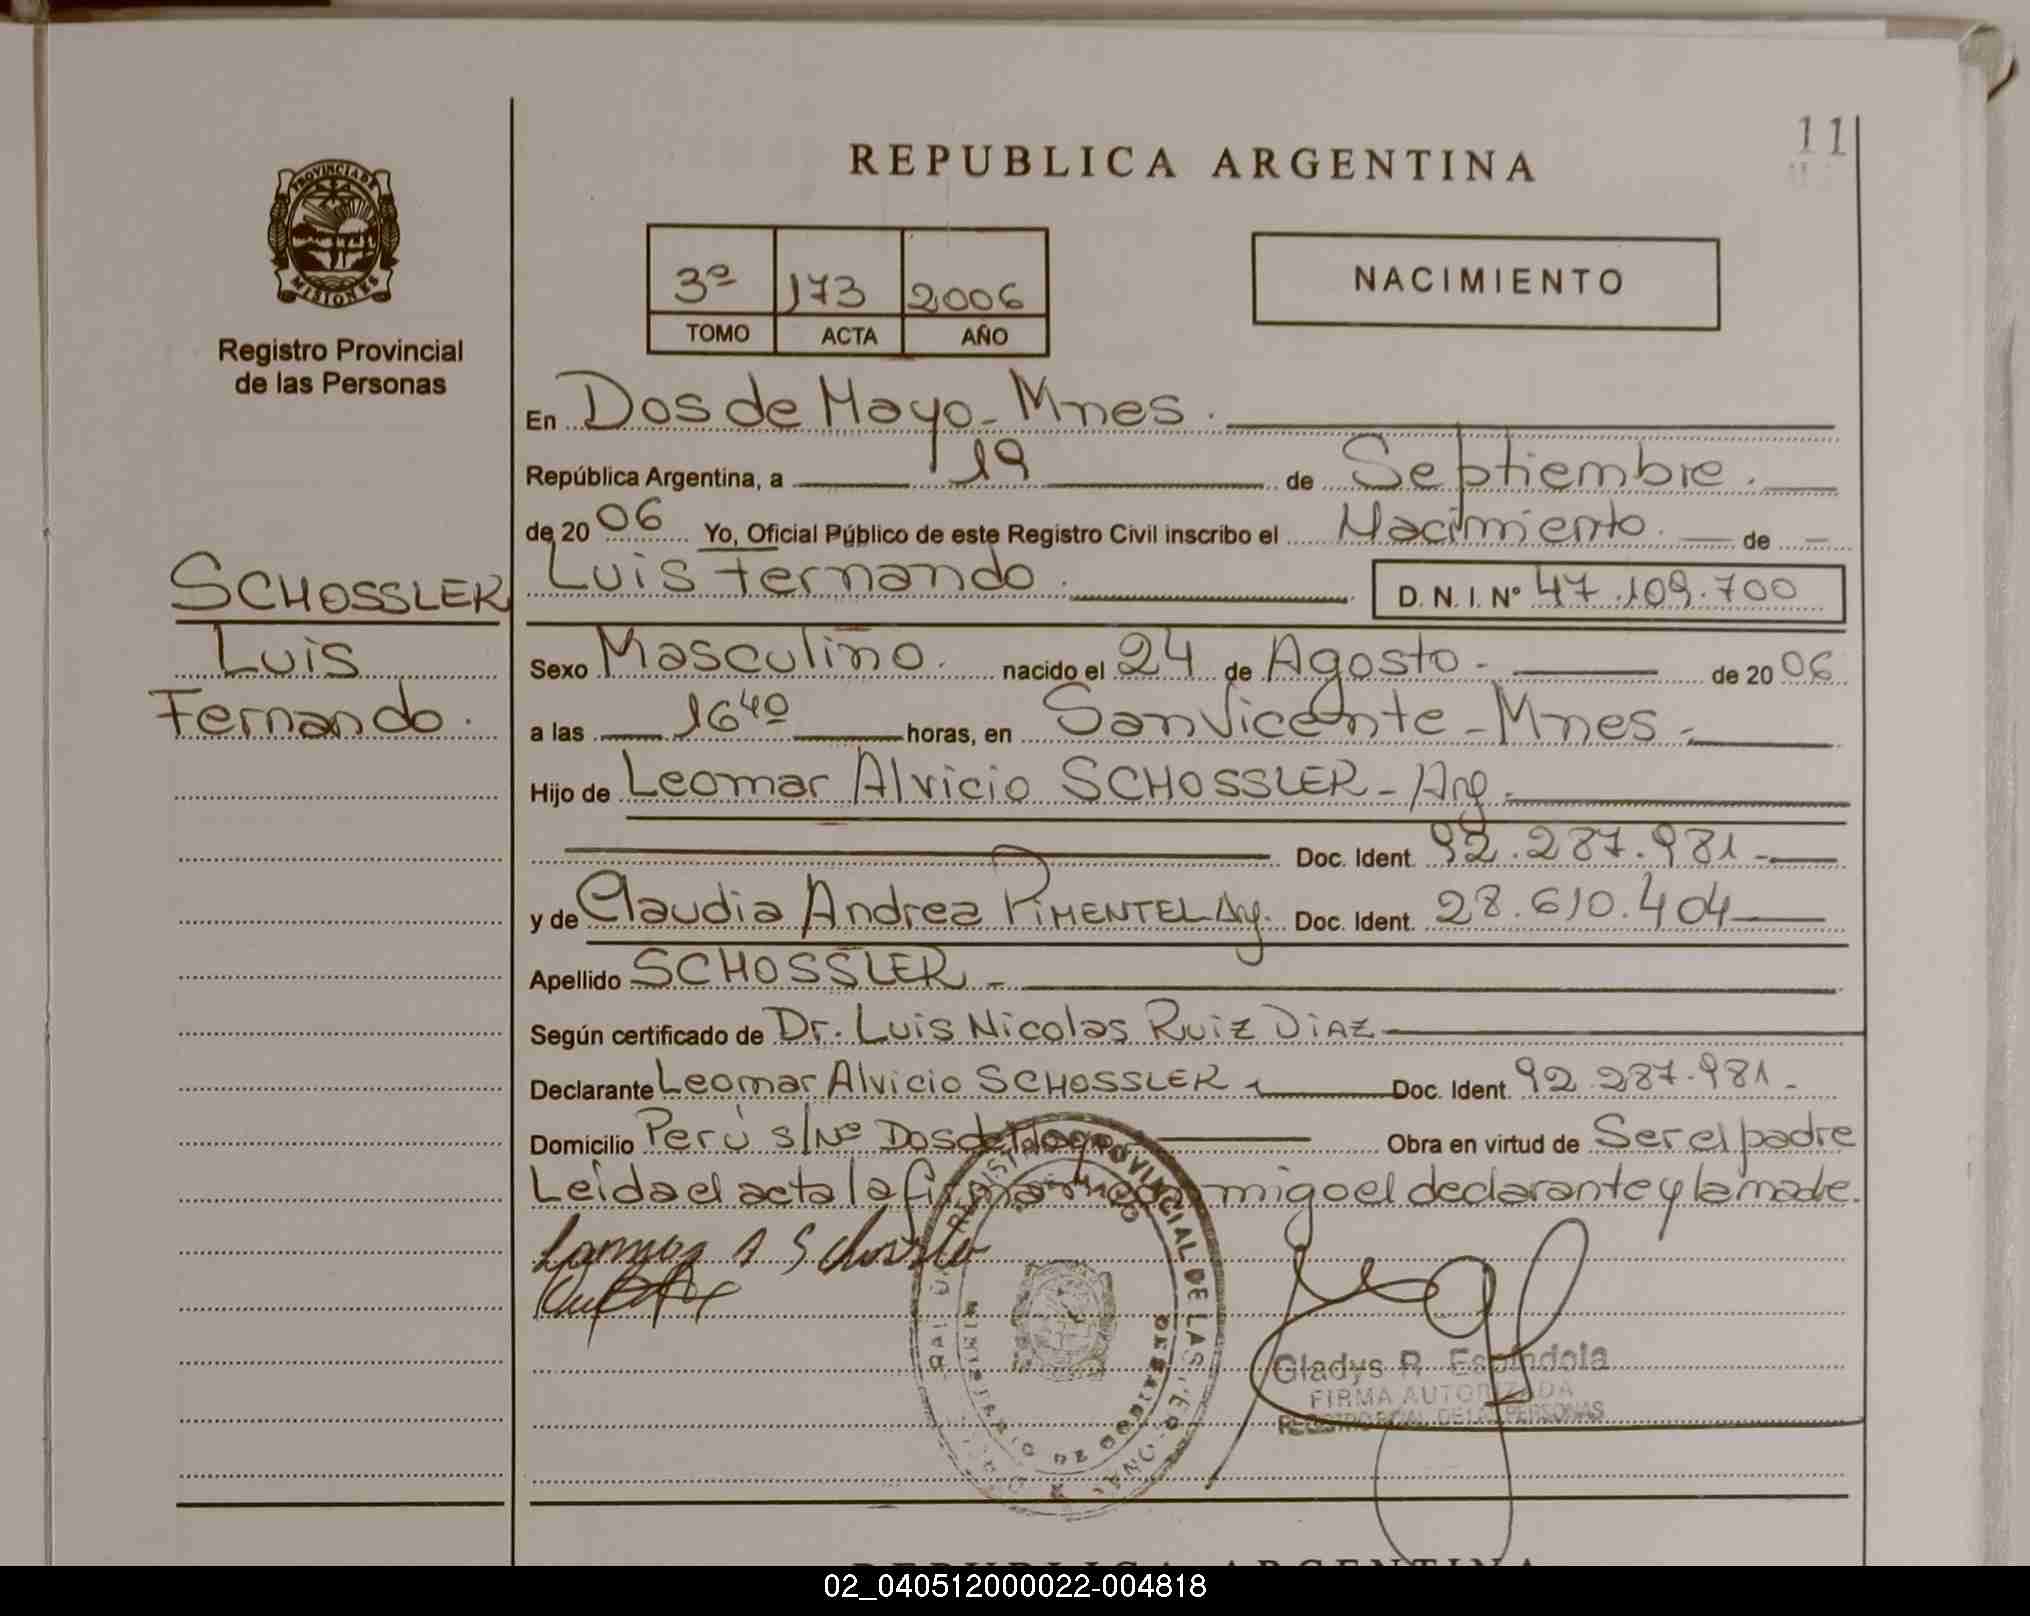 11
REPUBLICA ARGENTINA
PROVINCIA DE
MISIONES
3º 173 2006
TOMO ACTA AÑO
NACIMIENTO
Registro Provincial
de las Personas
En Dos de Mayo - Mnes.
República Argentina, a 19 de Septiembre.
de 2006 Yo, Oficial Público de este Registro Civil inscribo el Nacimiento. de
SCHOSSLER
Luis
Fernando.
Luis Fernando. D. N. I. Nº 47.109.700
Sexo Masculino. nacido el 24 de Agosto - de 2006
a las 16 40 horas, en San Vicente - Mnes -
Hijo de Leomar Alvicio SCHOSSLER - Arg -
Doc. Ident. 92.287.981 -
y de Claudia Andrea PIMENTEL Arg. Doc. Ident. 28.610.404
Apellido SCHOSSLER -
Según certificado de Dr. Luis Nicolas Ruiz Diaz
Declarante Leomar Alvicio SCHOSSLER - Doc. Ident. 92.287.981 -
Domicilio Perú s/Nº Dos de Mayo - Obra en virtud de Ser el padre
Leída el acta la firma conmigo el declarante y la madre.
REGISTRO PROVINCIAL DE LAS PERSONAS
MINISTERIO DE GOBIERNO
Gladys R. Espindola
FIRMA AUTORIZADA
REGISTRO PCIAL. DE LAS PERSONAS
REPUBLICA ARGENTINA
02_040512000022-004818